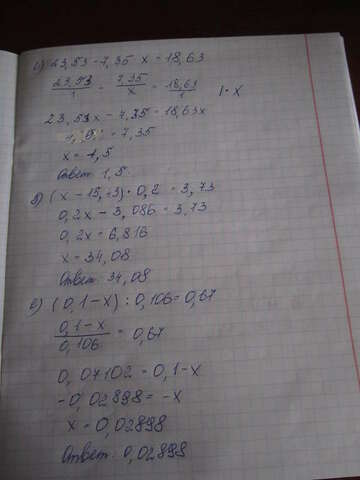 23,53 - 7,35 x = 18,63
23,53/1 - 7,35/x = 18,63/1 | · x
23,53x - 7,35 = 18,63x
= 7,35
x = 1,5
Ответ: 1,5.
(x - 15,43) · 0,2 = 3,73
0,2x - 3,086 = 3,73
0,2x = 6,816
x = 34,08
Ответ: 34,08
в) (0,1 - x) : 0,106 = 0,67
0,1 - x / 0,106 = 0,67
0,07102 = 0,1 - x
-0,02898 = -x
x = 0,02898
Ответ: 0,02898